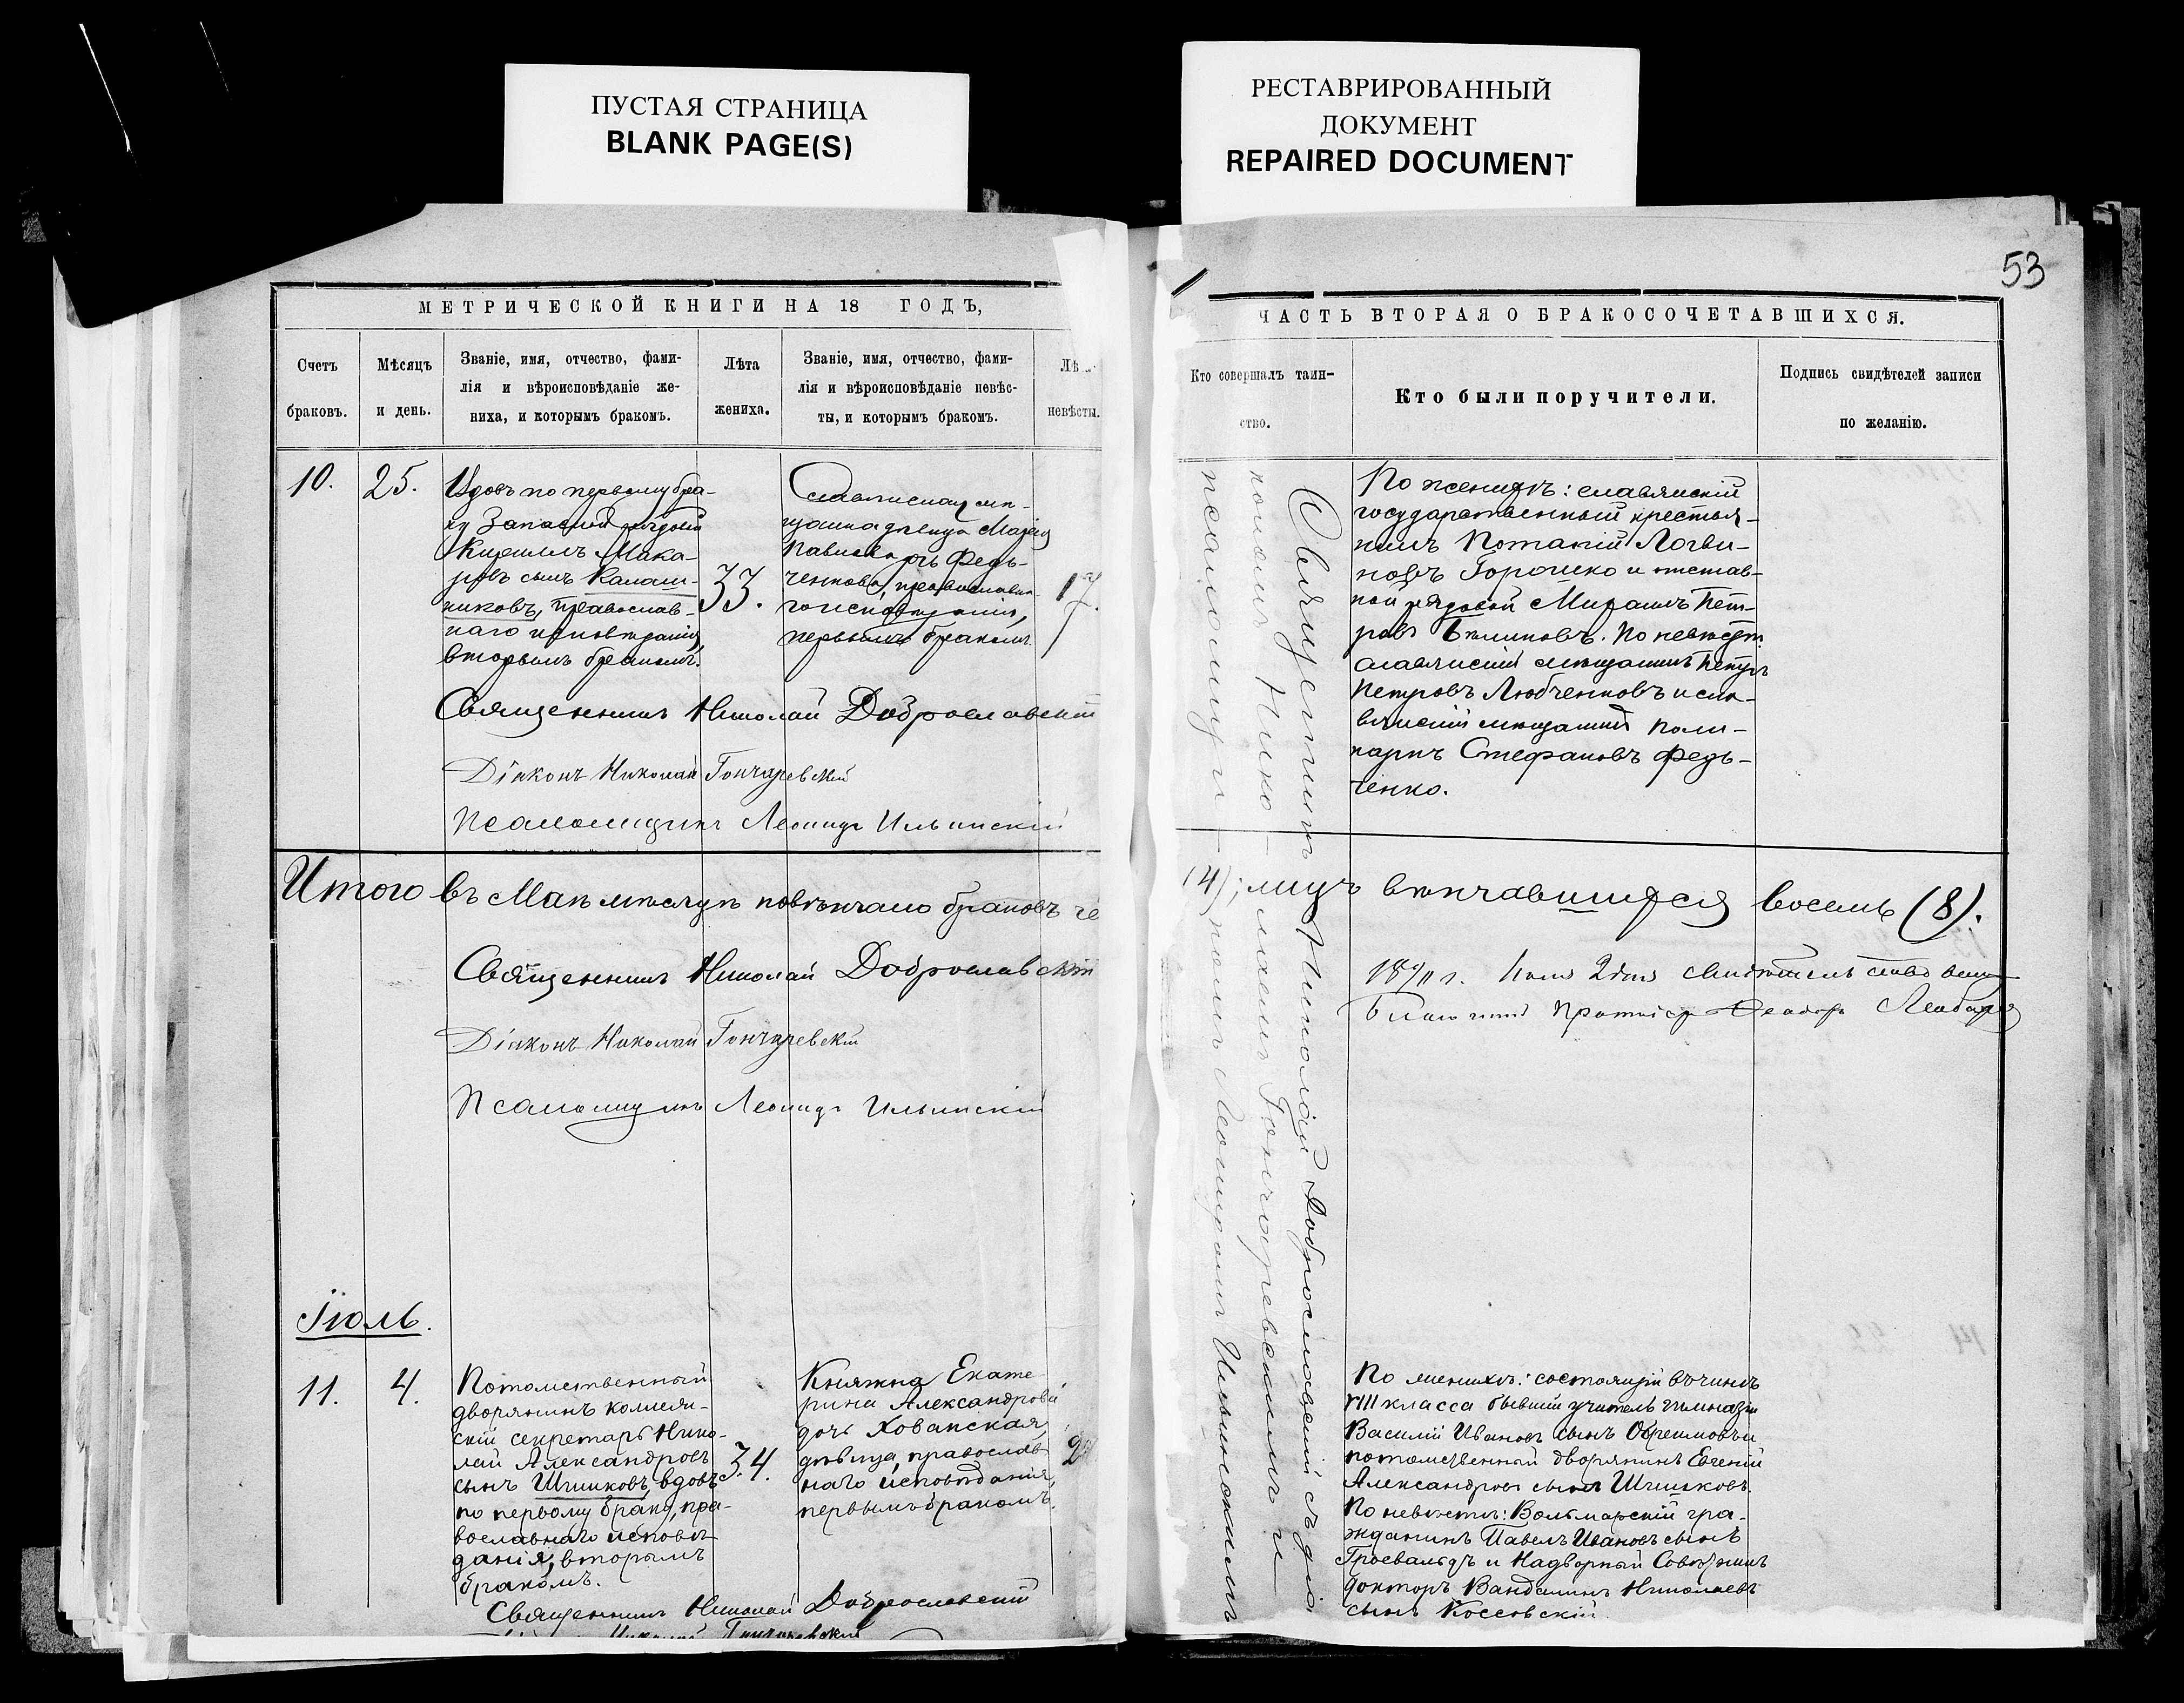 ПУСТАЯ СТРАНИЦА
BLANK PAGE(S)
РЕСТАВРИРОВАННЫЙ
ДОКУМЕНТ
REPAIRED DOCUMENT
53
МЕТРИЧЕСКОЙ КНИГИ НА 18 ГОДЪ,
Счетъ
браковъ.
Мѣсяцъ
и день.
Званіе, имя, отчество, фами-
лія и вѣроисповѣданіе же-
ниха, и которымъ бракомъ.
Лѣта
жениха.
Званіе, имя, отчество, фами-
лія и вѣроисповѣданіе невѣс-
ты, и которымъ бракомъ.
Лѣ
невѣсты.
10.
25.
Вдовъ по первому бра-
ку Запасный рядовой
Кириллъ Мака-
ровъ сынъ Калаш-
никовъ, православ-
наго исповѣданія,
вторымъ бракомъ.
33.
Славянская мѣ-
щанка дѣвица Марія
Павлова дчь Федь-
ченкова, православна-
го исповѣданія,
первымъ бракомъ.
17.
Священникъ Николай Доброславскій
Діаконъ Николай Гончаревскій
Псаломщикъ Леонидъ Ильинскій
Итого въ Маѣ мѣсяцѣ повѣнчано браковъ че
Священникъ Николай Доброславскій
Діаконъ Николай Гончаревскій
Псаломщикъ Леонидъ Ильинскій
Іюль.
11.
4.
Потомственный
дворянинъ коллеж-
скій секретарь Нико-
лай Александровъ
сынъ Шишковъ, вдовъ
по первому браку, пра-
вославнаго исповѣ-
данія, вторымъ
бракомъ.
34.
Княжна Екате-
рина Александрова
дочь Хованская,
дѣвица, православ-
наго исповѣданія,
первымъ бракомъ.
2
Священникъ Николай Доброславскій
Николай Гончаревскій
ЧАСТЬ ВТОРАЯ О БРАКОСОЧЕТАВШИХСЯ.
Кто совершалъ таин-
ство.
Кто были поручители.
Подпись свидѣтелей записи
по желанію.
Священникъ Николай Доброславскій съ діа-
кономъ Нико-лаемъ Гончаревскимъ и
псаломщи-комъ Леонидомъ Ильинскимъ
По женихѣ: славянскій
государственный крестья-
нинъ Потапій Логви-
новъ Горошко и отстав-
ной рядовой Михаилъ Пет-
ровъ Блиновъ. По невѣстѣ:
славянскій мѣщанинъ Петръ
Петровъ Любченковъ и сла-
вянскій мѣщанинъ Поли-
карпъ Стефановъ Федь-
ченко.
(4); лицъ вѣнчавшихся восемь (8).
Іюля 2 дня свидѣтельствовалъ
Благочинный Протоіер Ѳеодоръ
По женихѣ: состоящій въ чинѣ
VIII класса бывшій учитель гимназіи
Василій Ивановъ сынъ Ефремовъ и
потомственный дворянинъ Евгеній
Александровъ сынъ Шишковъ.
По невѣстѣ: Вольмарскій гра-
жданинъ Павелъ Ивановъ сынъ
Гросвальдъ и Надворный Совѣтникъ
докторъ Вандалинъ Николаевъ
сынъ Коссовскій.